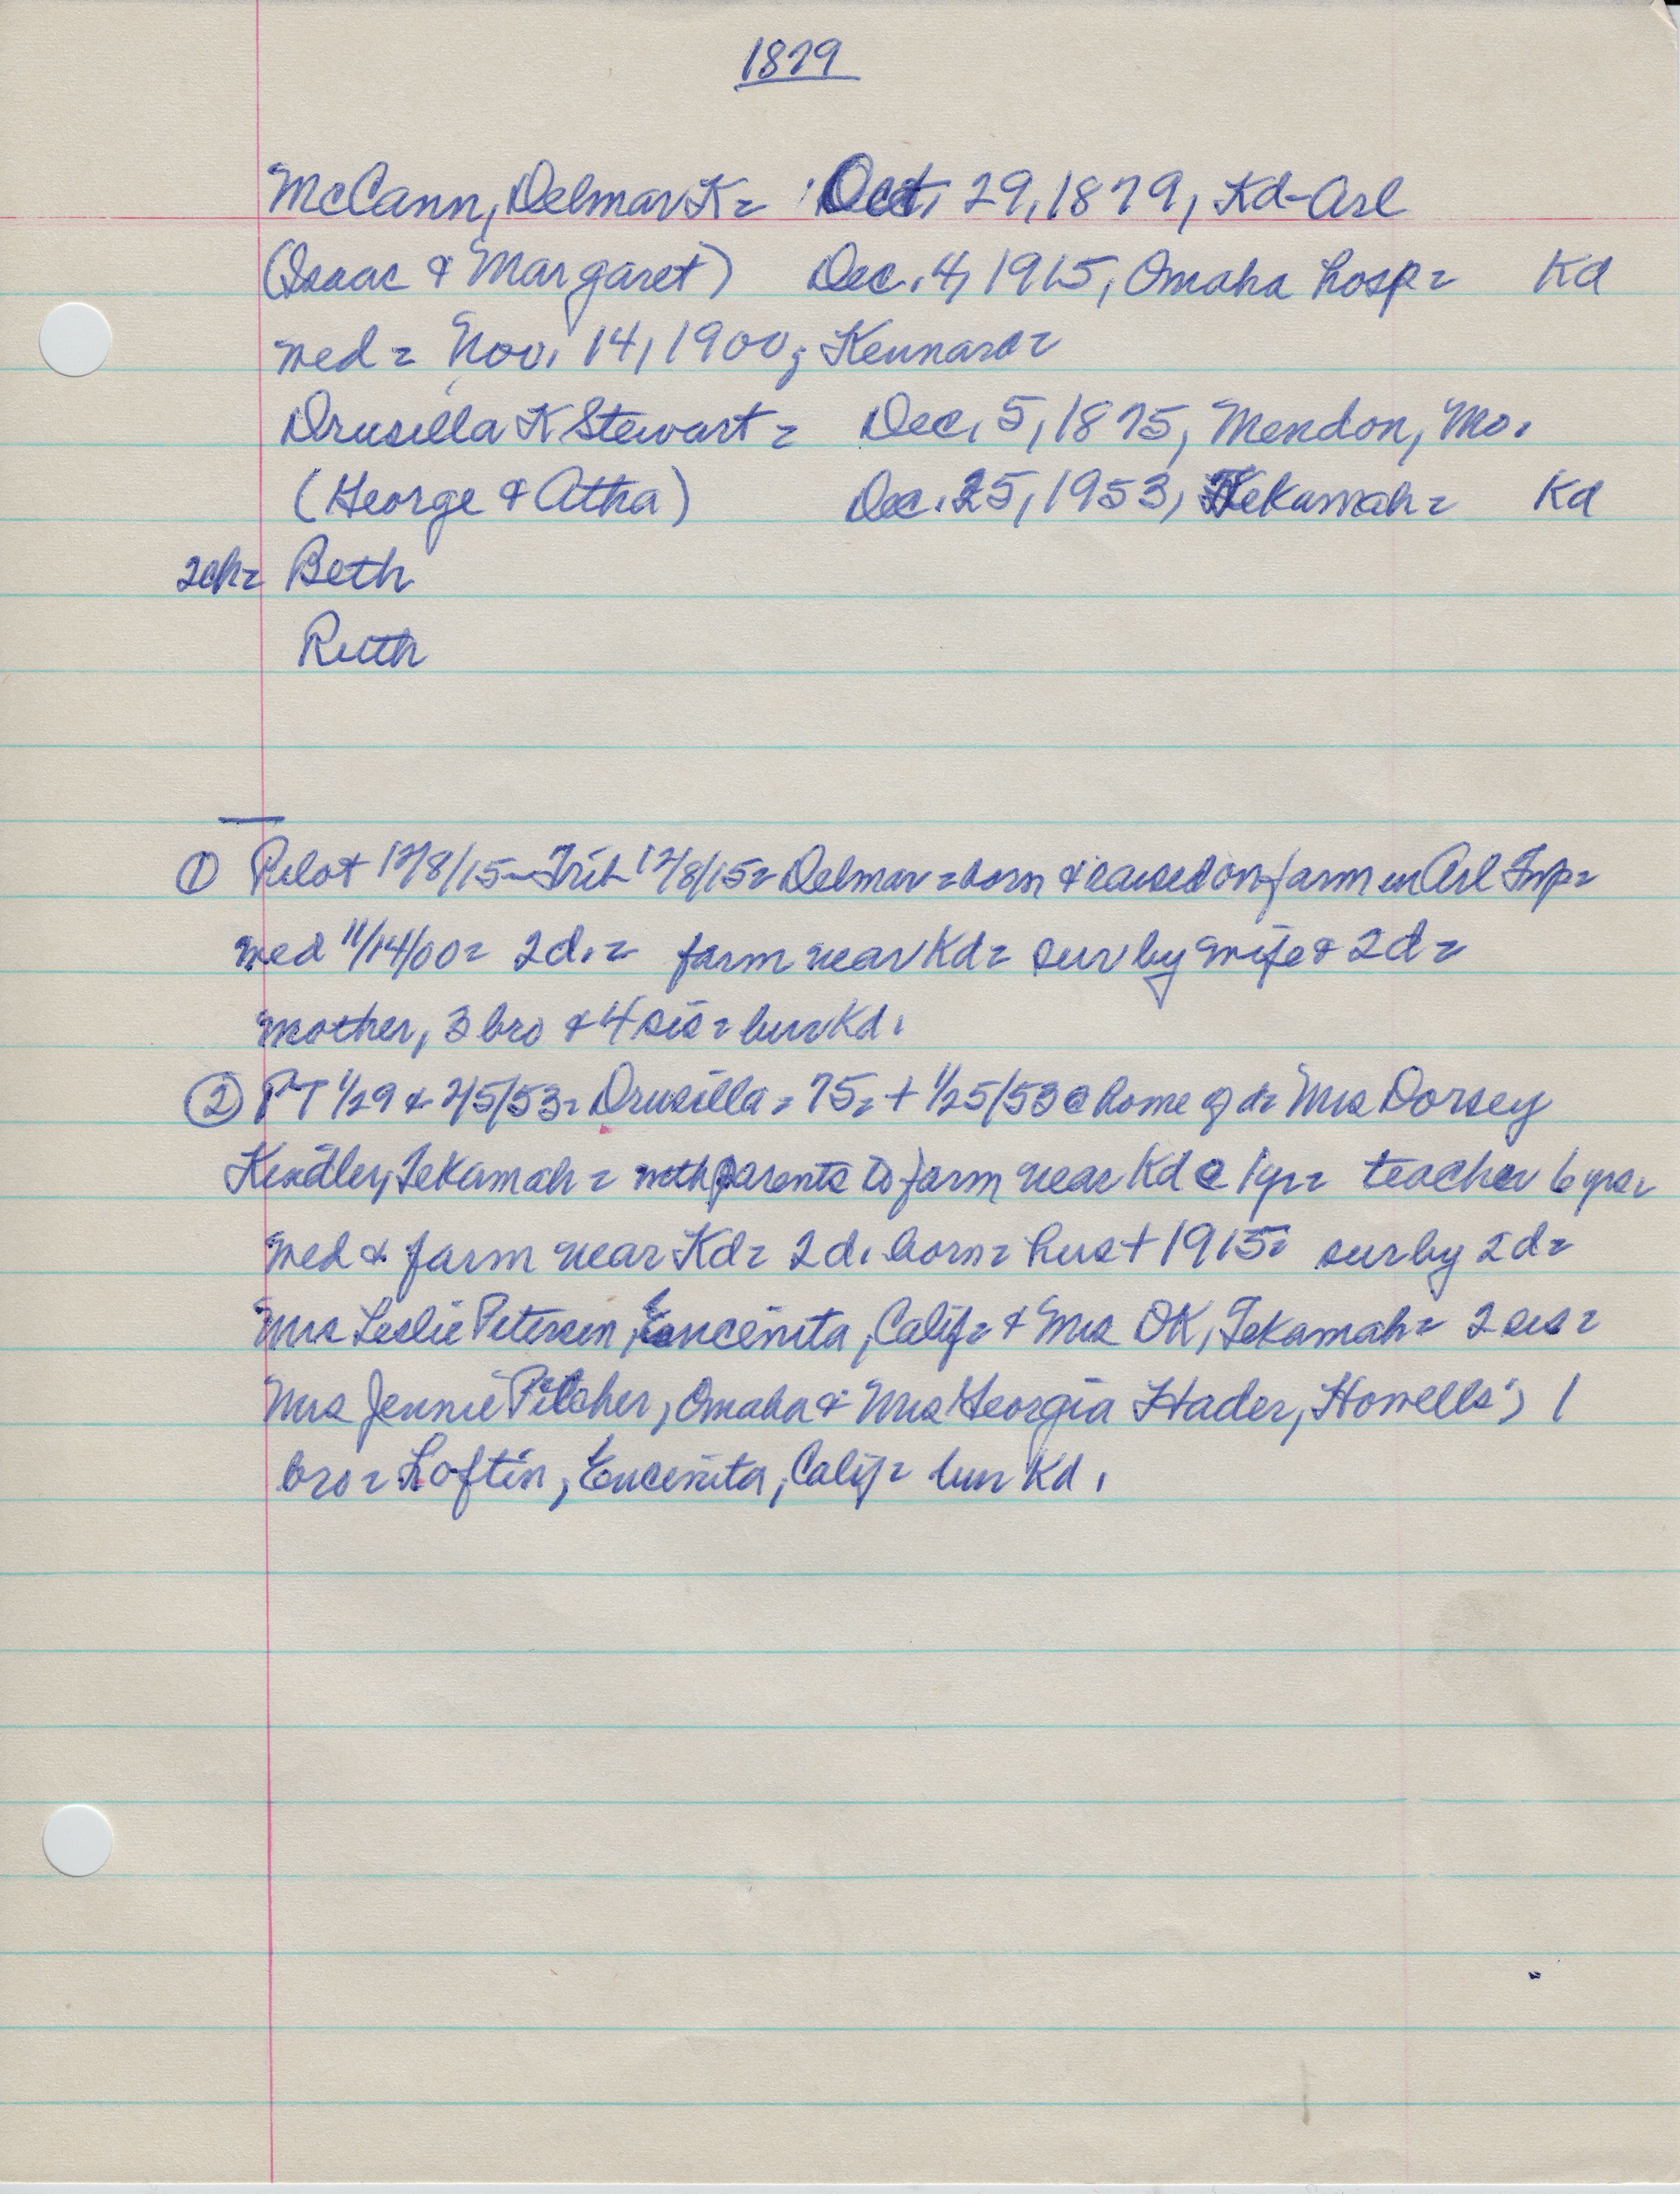 1879
McCann, Delmar K = Oct. 29, 1879, Kd-Arl
(Isaac & Margaret) Dec. 4, 1915, Omaha hosp = Kd
med = Nov. 14, 1900, Kennard =
Drusilla K Stewart = Dec. 5, 1875, Mendon, Mo.
(George & Atha) Dec. 25, 1953, Tekamah = Kd
2ch = Beth
Ruth
① Pilot 12/8/15 - Trib 12/8/15 = Delmar = born & raised on farm in Arl Twp =
med 11/14/00 = 2d. = farm near Kd = sur by wife & 2d =
mother, 3 bro & 4 sis = bur Kd.
② PT 1/29 & 2/5/53 = Drusilla = 75 = + 1/25/53 @ home of d = Mrs Dorsey
Kindler, Tekamah = with parents to farm near Kd @ 1yr = teacher 6 yrs =
med & farm near Kd = 2 d. born = hus + 1915 = sur by 2d =
Mrs Leslie Petersen, Encenita, Calif = & Mrs DK, Tekamah = 2 sis =
Mrs Jennie Pilcher, Omaha & Mrs Georgia Hader, Howells; 1
bro = Loftin, Encenita, Calif = bur Kd.